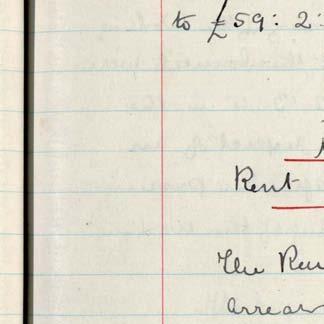 to £59: 2:
Rent
The Ren
arrear